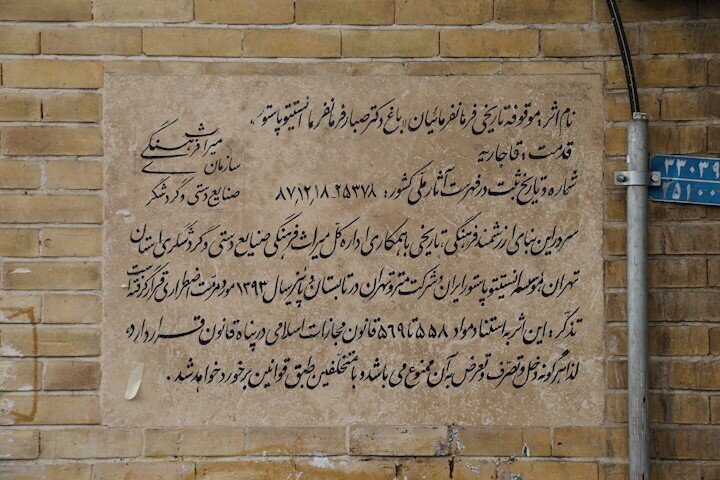 نام اثر: موقوفه تاریخی فرمانفرمائیان «باغ دکتر صبار فرمانفرما» انستیتو پاستور،
قدمت: قاجاریه
شماره و تاریخ ثبت در فهرست آثار ملّی کشور: ۲۵۳۷۸-۸۷,۱۲,۱۸
میراث فرهنگی
سازمان
صنایع دستی و گردشگری
سردر این بنای ارزشمند فرهنگی، تاریخی با همکاری اداره کلّ میراث فرهنگی صنایع دستی و گردشگری استان
تهران، مؤسسه انستیتو پاستور ایران و شرکت مترو تهران در تابستان و پائیز سال ۱۳۹۳ مورد مرمت اضطراری قرار گرفته است
تذکر: این اثر به استناد مواد ۵۵۸ تا ۵۶۹ قانون مجازات اسلامی در پناه قانون قرار دارد،
لذا هرگونه دخل و تصرّف و تعرض به آن ممنوع می باشد و با متخلّفین طبق قوانین برخورد خواهد شد.
۳۳۰۳۹
۲۵۱۰۰